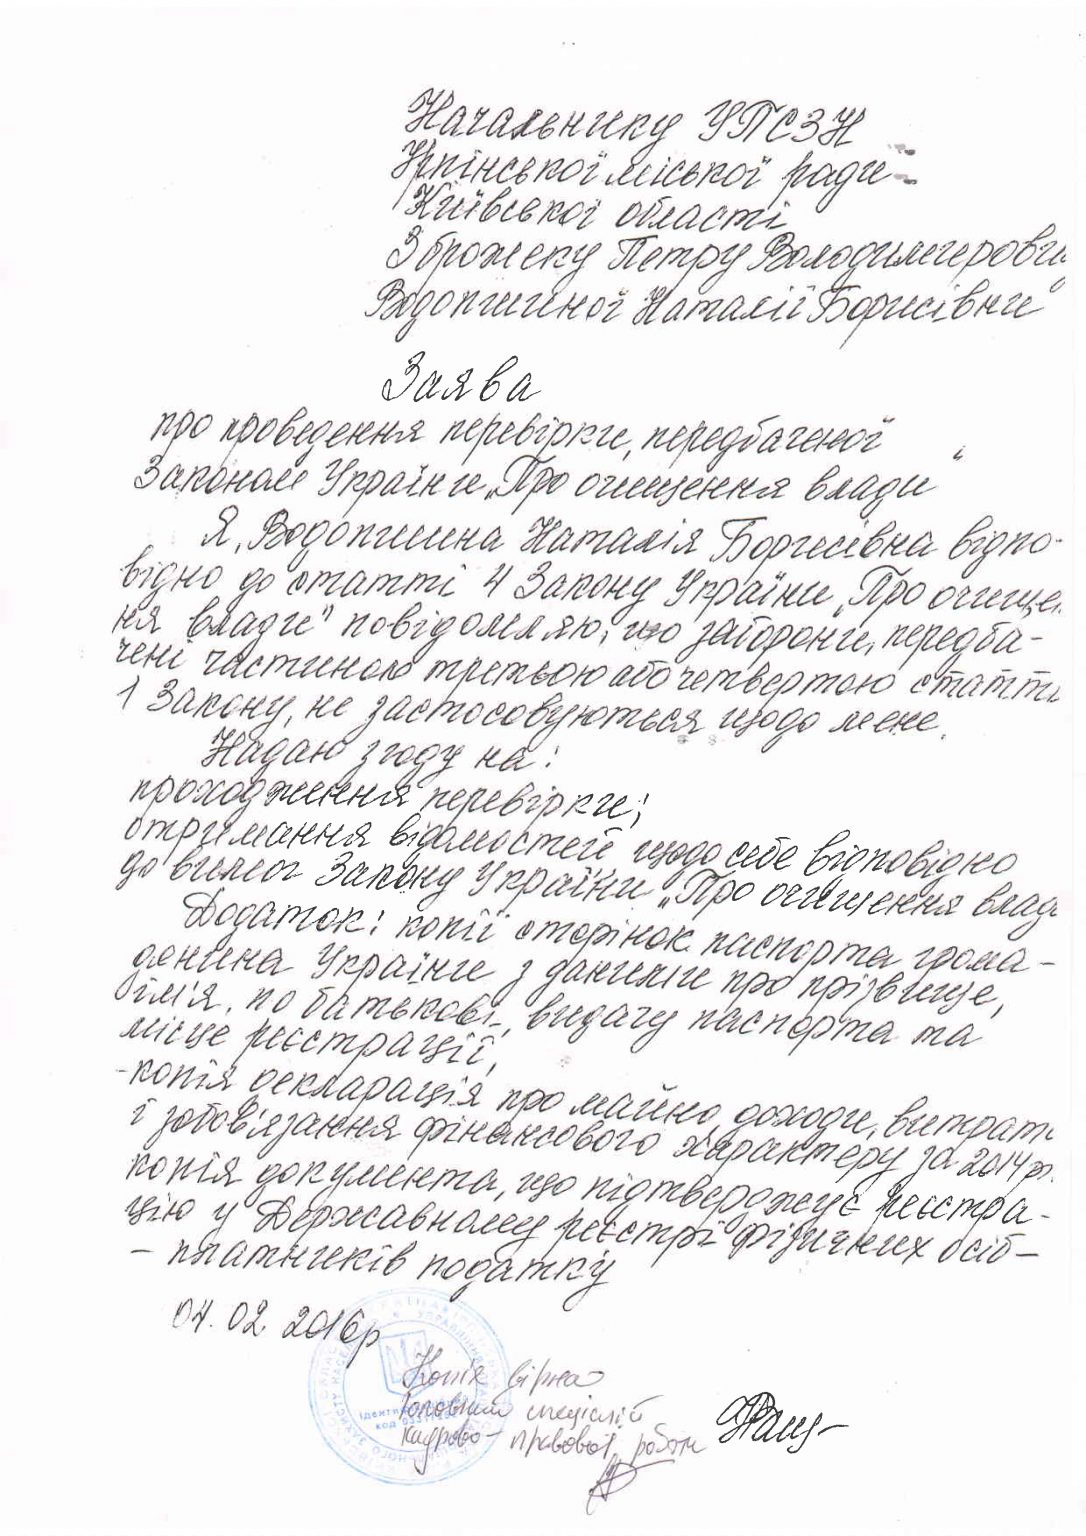 Начальнику УПСЗН
Ірпінської міської ради
Київської області
Зброжеку Петру Володимирови
Водопшиної Наталії Борисівни
Заява
про проведення перевірки, передбаченої
Законом України „Про очищення влади"
Я, Водопшина Наталія Борисівна відпо-
відно до статті 4 Закону України „Про очищен
ня влади" повідомляю, що заборони, передба-
чені частиною третьою або четвертою статті
1 Закону, не застосовуються щодо мене.
Надаю згоду на:
проходження перевірки;
отримання відомостей щодо себе відповідно
до вимог Закону України „Про очищення влади
Додаток: копії сторінок паспорта грома-
дянина України з даними про прізвище,
ім'я, по батькові, видачу паспорта та
місце реєстрації,
-копія декларація про майно, доходи, витрати
і зобов'язання фінансового характеру за 2014 р.
копія документа, що підтверджує реєстра-
цію у Державному реєстрі фізичних осіб-
- платників податку
04.02.2016р
Копія вірна
Головний спеціаліст
кадрово-правової роботи